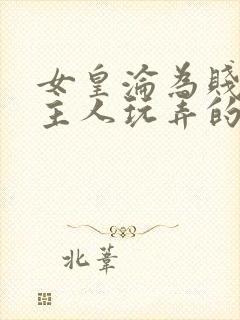 女皇淪為賤
主人玩弄的
北葦